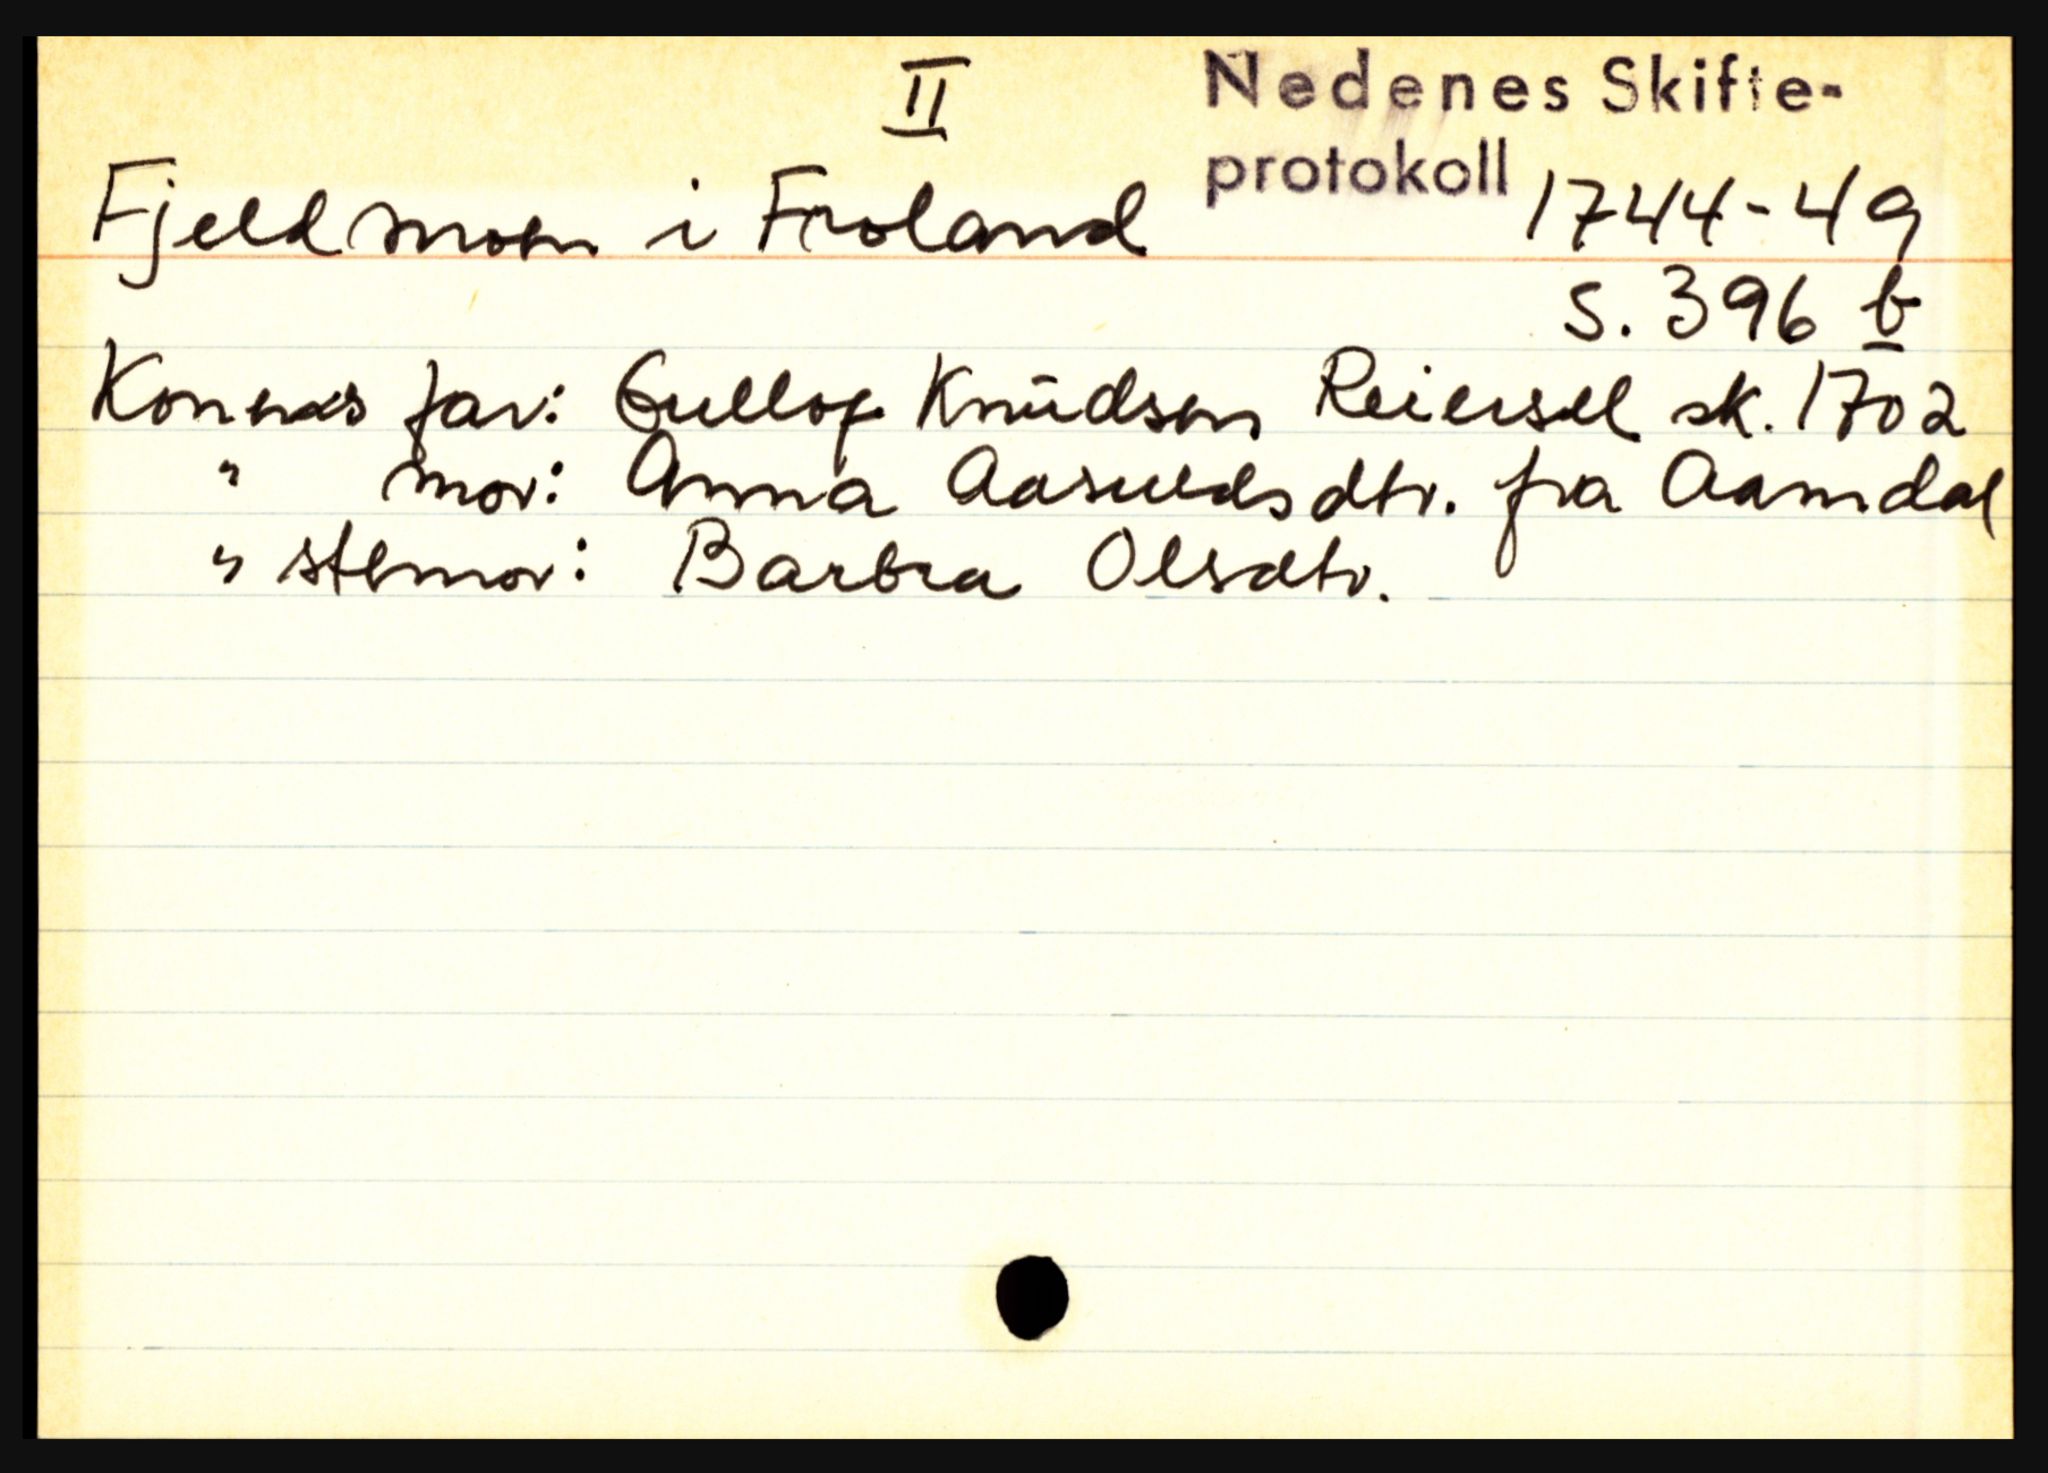 II
Nedenes Skifte-
protokoll 1744-49
Fjeldmoen i Froland
s. 396 b
Konens far: Gullof Knudsen Reiersel sk. 1702
" mor: Anna Aasuldsdtr. fra Aamdal
" stemor: Barbra Olsdtr.